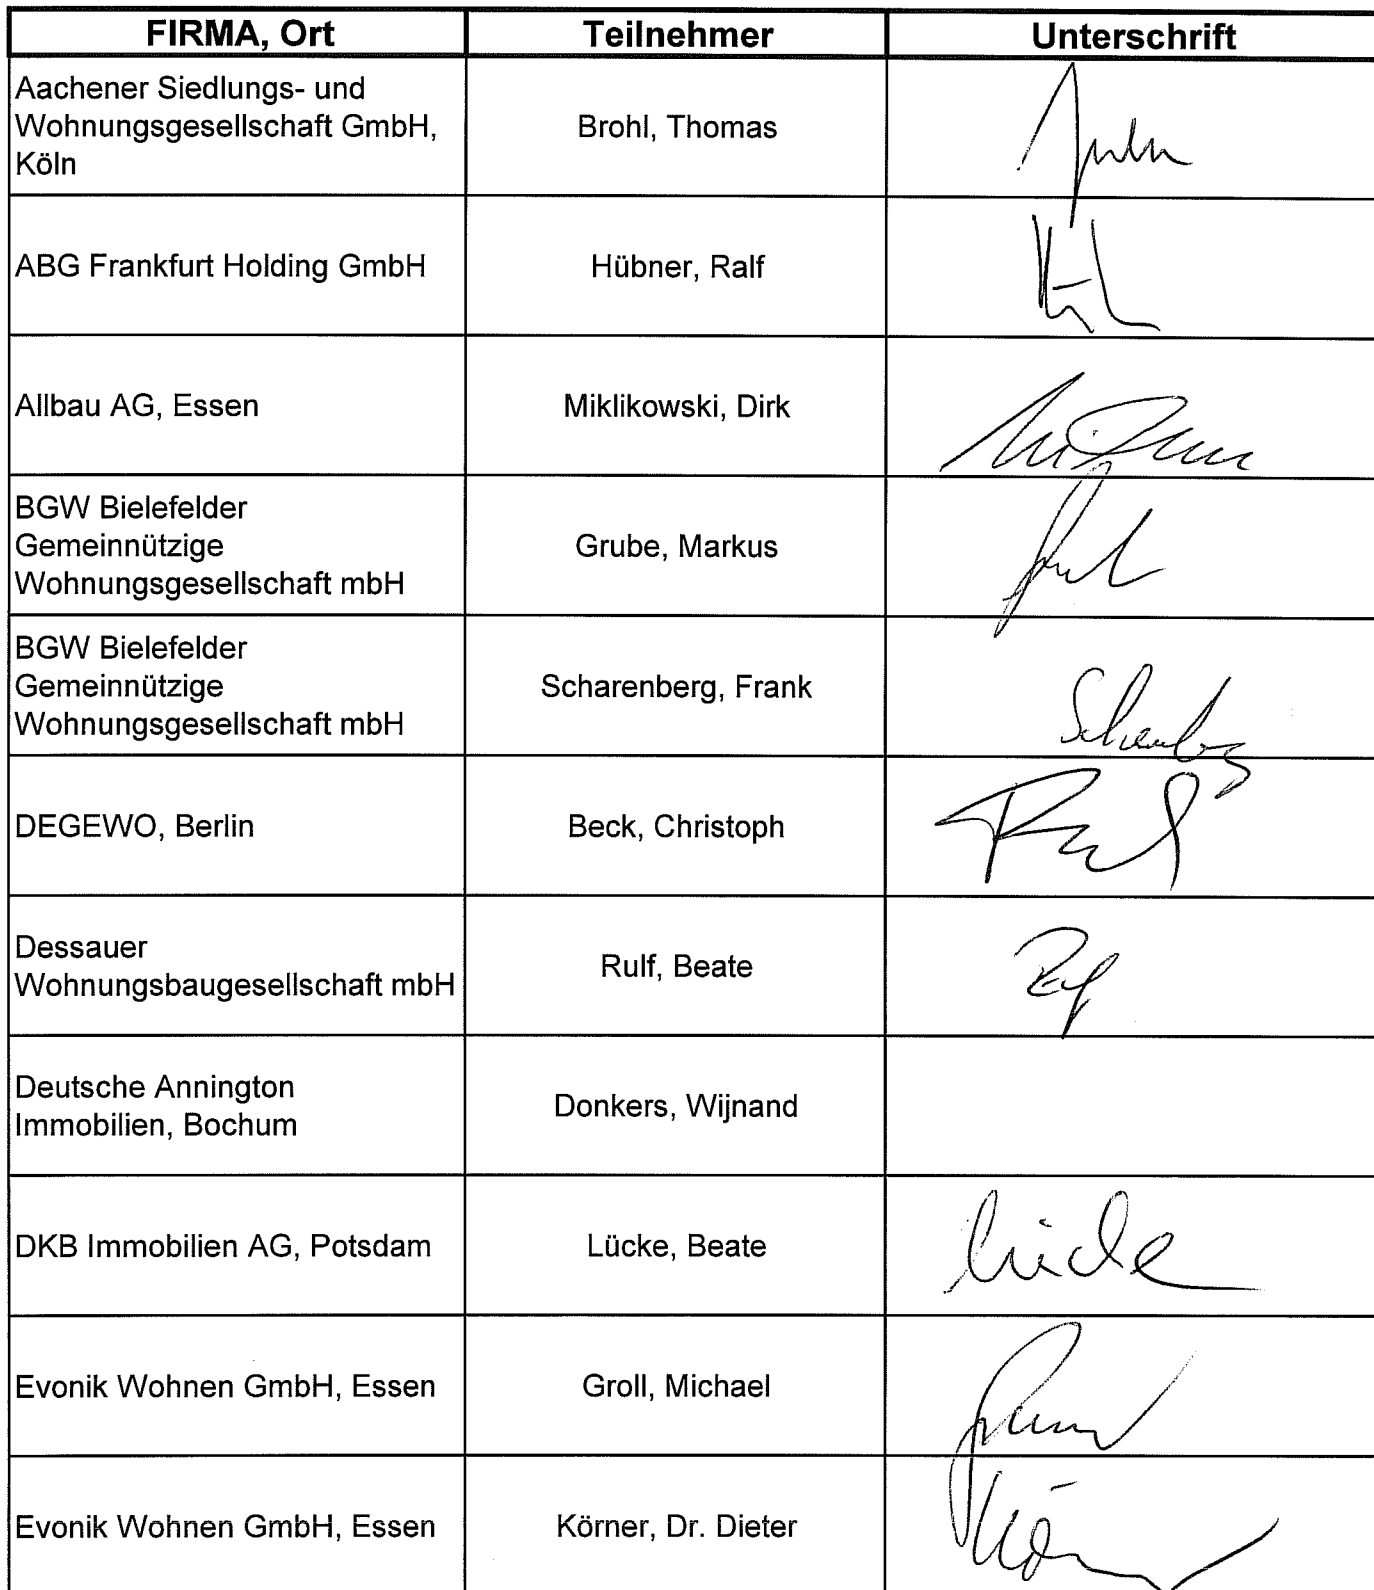 FIRMA, Ort Teilnehmer Unterschrift
Aachener Siedlungs- und
Wohnungsgesellschaft GmbH,
Köln
Brohl, Thomas
ABG Frankfurt Holding GmbH
Hübner, Ralf
Allbau AG, Essen
Miklikowski, Dirk
BGW Bielefelder
Gemeinnützige
Wohnungsgesellschaft mbH
Grube, Markus
BGW Bielefelder
Gemeinnützige
Wohnungsgesellschaft mbH
Scharenberg, Frank
DEGEWO, Berlin
Beck, Christoph
Dessauer
Wohnungsbaugesellschaft mbH
Rulf, Beate
Deutsche Annington
Immobilien, Bochum
Donkers, Wijnand
DKB Immobilien AG, Potsdam
Lücke, Beate
Lücke
Evonik Wohnen GmbH, Essen
Groll, Michael
Evonik Wohnen GmbH, Essen
Körner, Dr. Dieter